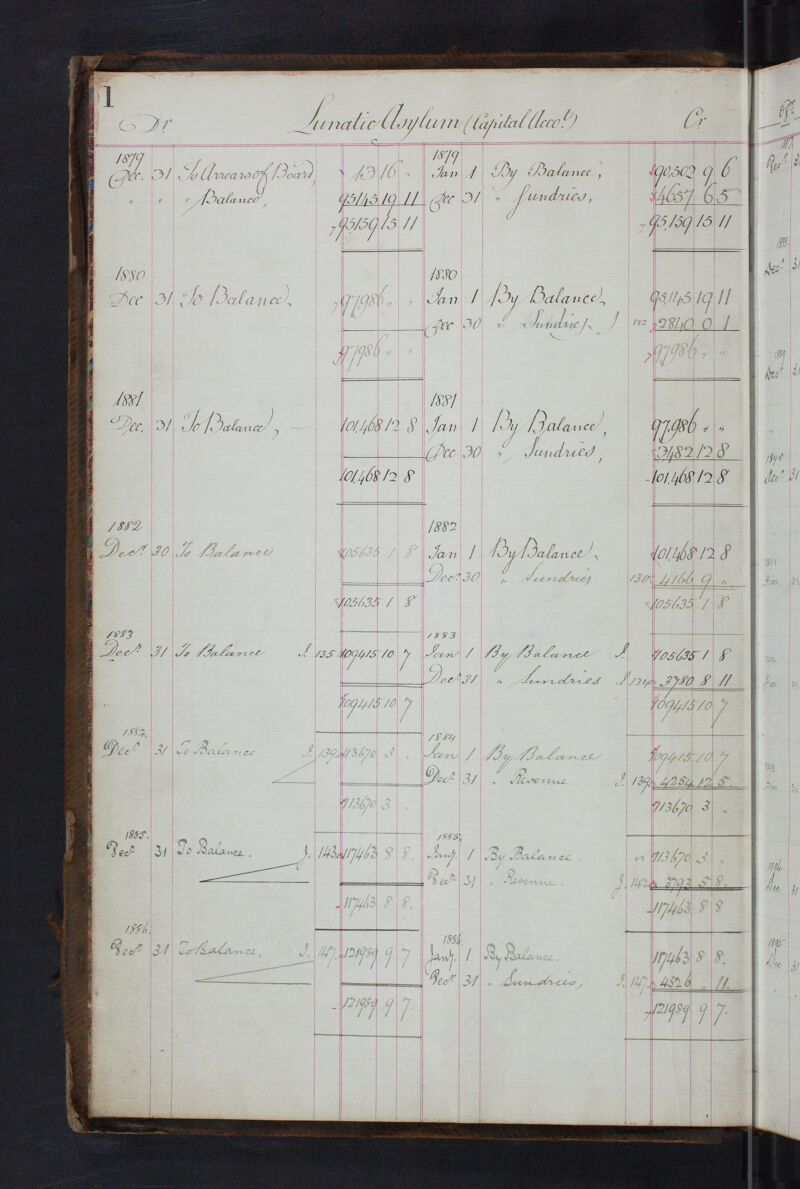 1
Dr Lunatic Asylum (Capital Acco.t) Cr
1879 1879
Dec. 31 To Arrears of Board, 13 16 " Jan 1 By Balance, 90,502 9 6
" " " Balance, 95145 19 11 Dec 31 " Sundries, 4657 6 5
95159 15 11 95,159 15 11
1880 1880
Dec 31 To Balance, 97,986 " " Jan 1 By Balance, 95,145 19 11
Dec 30 " Sundries J 122 2840 0 1
97,986 " " 97,986 " "
1881 1881
Dec. 31 To Balance, 101,468 12 8 Jan 1 By Balance, 97,986 " "
Dec 30 " Sundries, 3482 12 8
101,468 12 8 101,468 12 8
1882 1882
Decr. 30 To Balance 105635 1 8 Jan 1 By Balance, 101,468 12 8
Decr 30 " Sundries 130 4166 9 "
105635 1 8 105635 1 8
1883 1883
Decr. 31 To Balance J. 135 109415 10 7 Jan 1 By Balance J. 105635 1 8
Decr 31 " Sundries J 134 3780 8 11
109415 10 7 109415 10 7
1884. 1884
Decr 31 To Balance J. 139 113670 3 . Jan 1 By Balance 109415 10 7
Decr. 31 " Revenue J. 139 4254 12 5
113670 3 . 113670 3 "
1885. 1885.
Decr 31 To Balance. J. 143 117463 8 8. Jany. 1 By Balance. " 113670 3 .
Decr 31 " Revenue. J. 142 3793 5 8.
117463 8 8. 117463 8 8
1886. 1886.
Decr. 31 To Balance, J. 147. 121989 9 7 Jany. 1 By Balance. 117463 8 8.
Decr 31 " Sundries, J. 147. 4526 " 11.
121989 9 7. 121989 9 7.